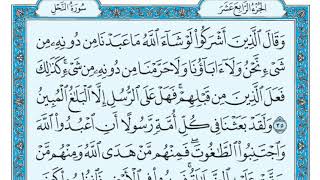 الجزء الرابع عشر
سورة النحل
وَقَالَ ٱلَّذِينَ أَشْرَكُوا۟ لَوْ شَآءَ ٱللَّهُ مَا عَبَدْنَا مِن دُونِهِۦ مِن
شَىْءٍ نَّحْنُ وَلَآ ءَابَآؤُنَا وَلَا حَرَّمْنَا مِن دُونِهِۦ مِن شَىْءٍ كَذَٰلِكَ
فَعَلَ ٱلَّذِينَ مِن قَبْلِهِمْ فَهَلْ عَلَى ٱلرُّسُلِ إِلَّا ٱلْبَلَٰغُ ٱلْمُبِينُ
٣٥ وَلَقَدْ بَعَثْنَا فِى كُلِّ أُمَّةٍ رَّسُولًا أَنِ ٱعْبُدُوا۟ ٱللَّهَ
وَٱجْتَنِبُوا۟ ٱلطَّٰغُوتَ فَمِنْهُم مَّنْ هَدَى ٱللَّهُ وَمِنْهُم مَّنْ